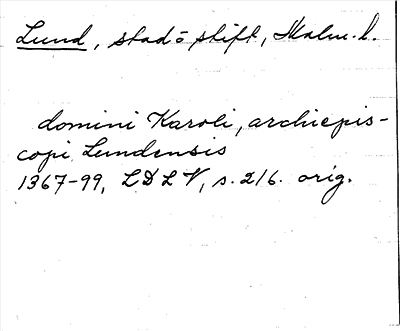 Lund, stad o stift, Malm. l.
domini Karoli, archiepis-
copi Lundensis
1367-99, LDLV, s. 216. orig.